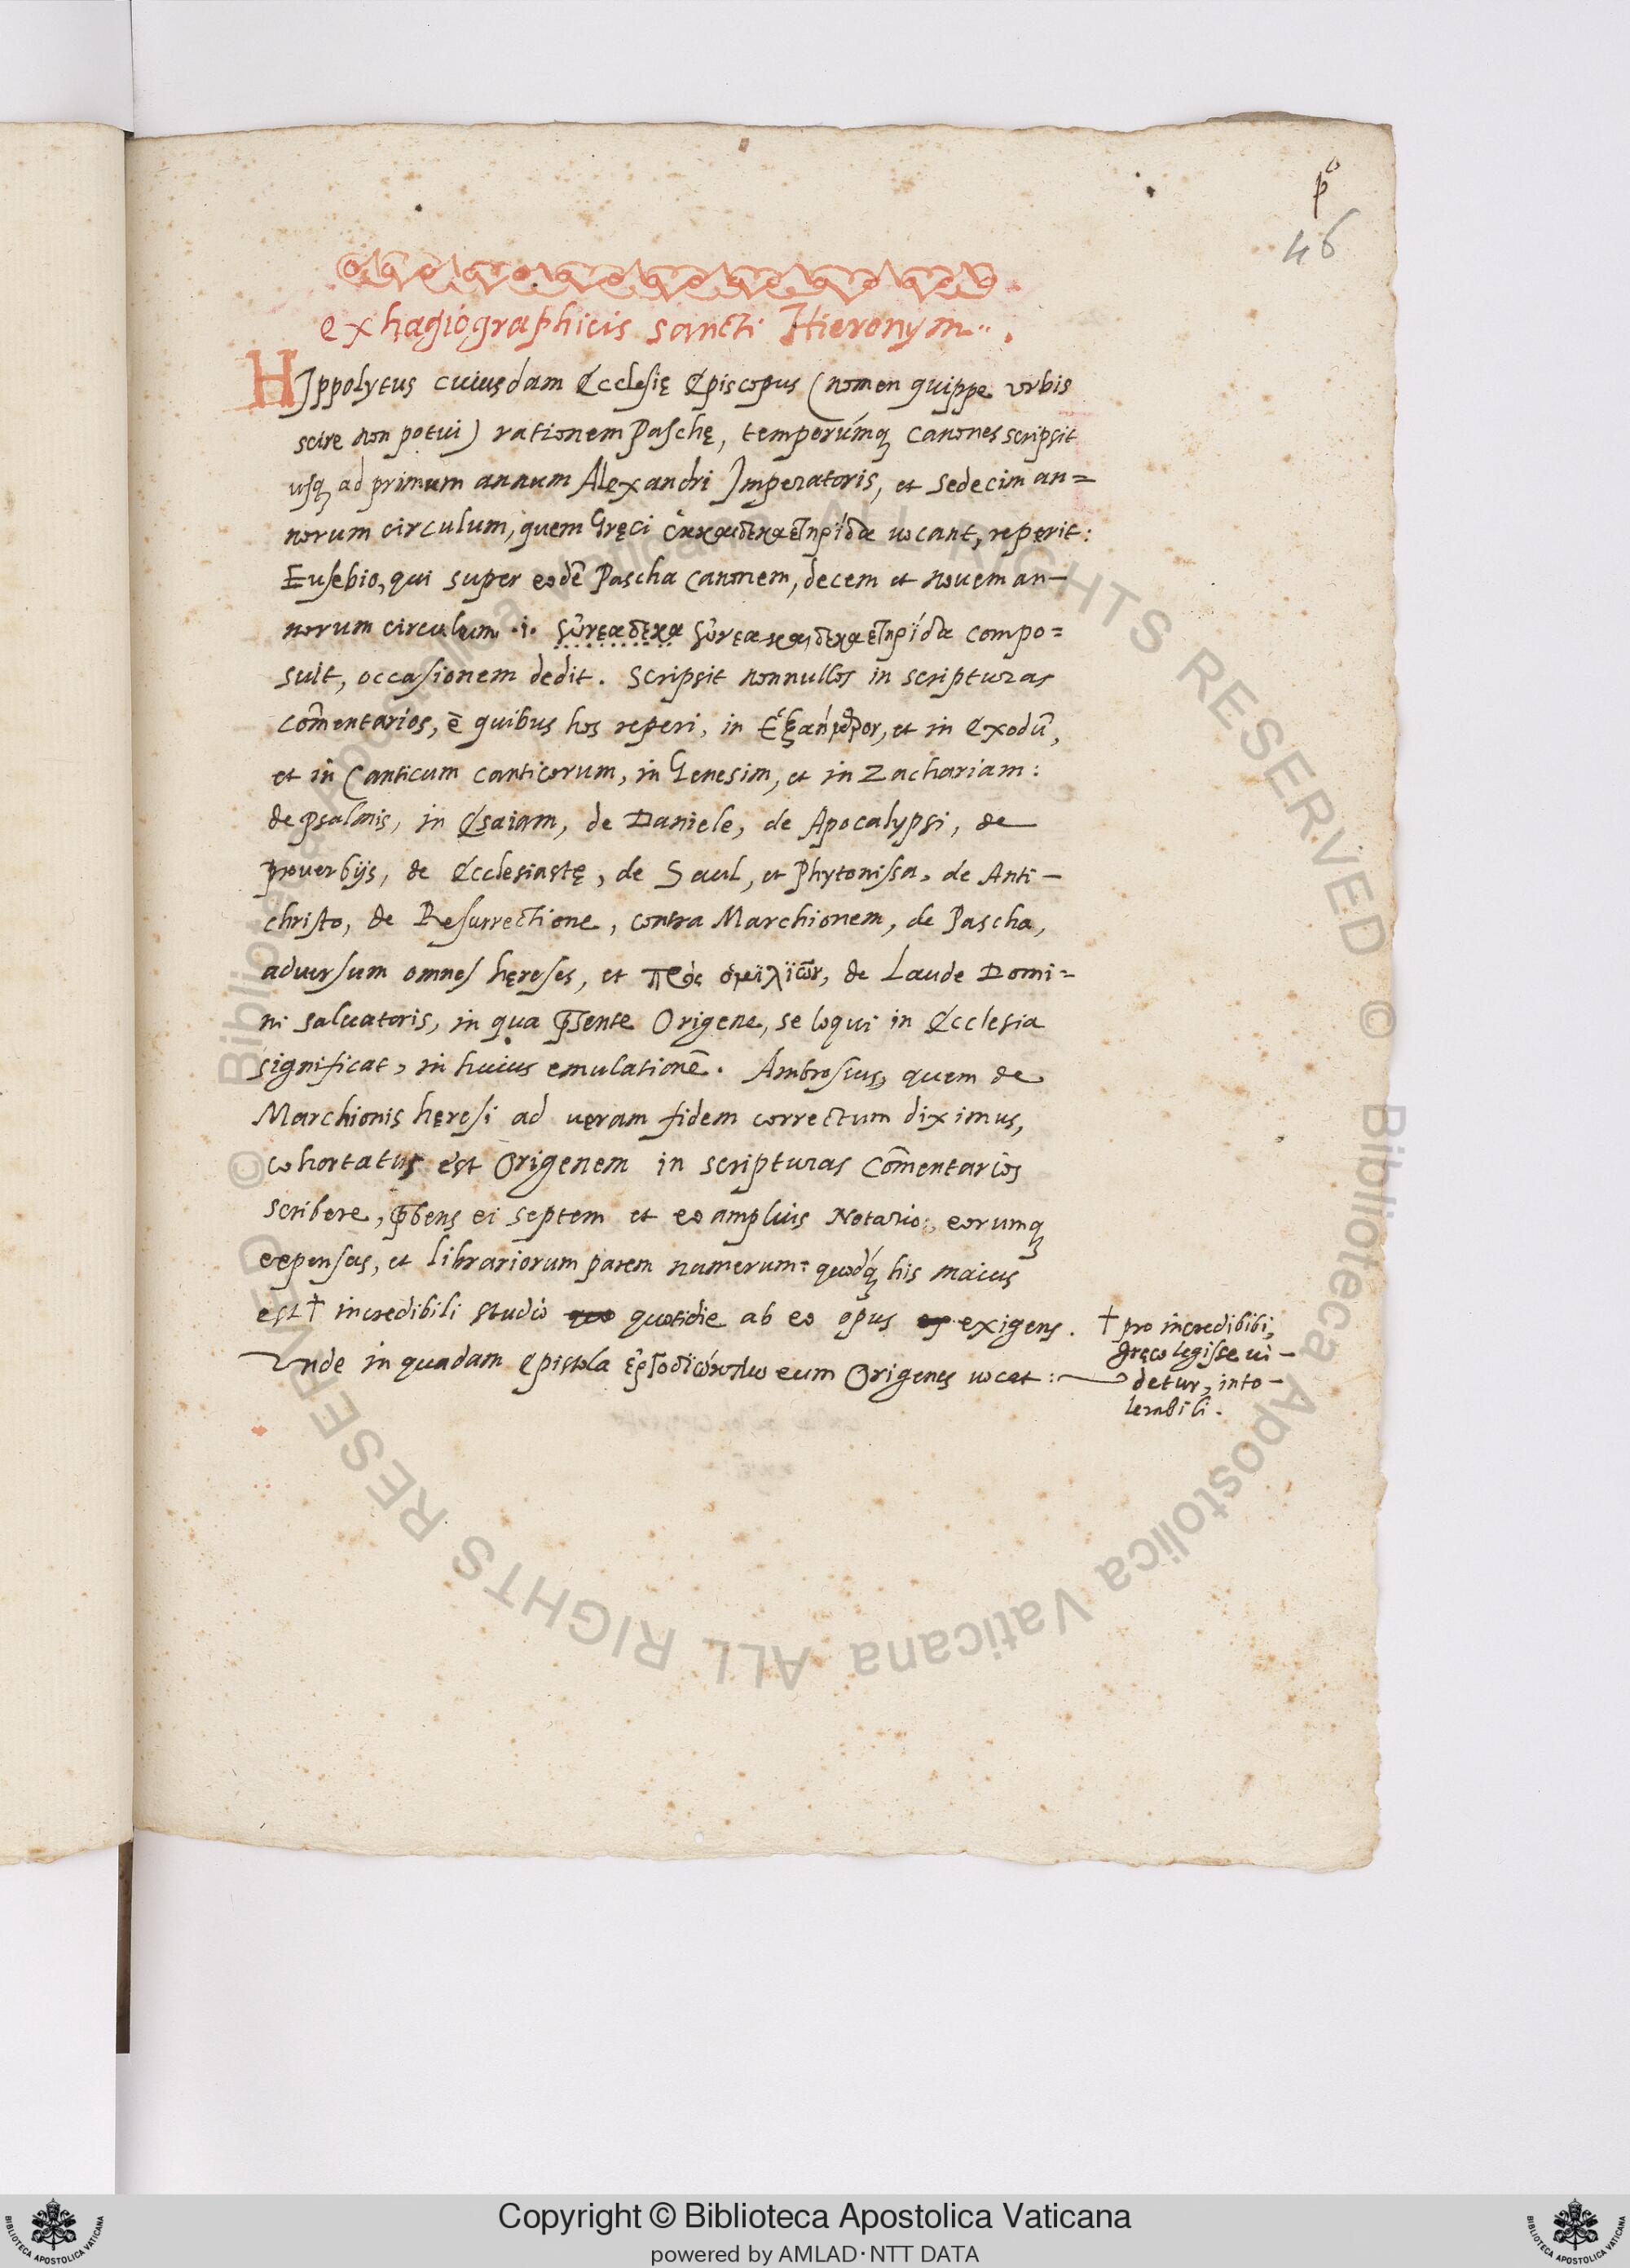 pº
46
ex hagiographicis sancti Hieronym..
HIppolytus cuiusdam Ecclesię Episcopus (nomen quippe vrbis
scire non potui) rationem Paschę, temperúmq; canones scripsit
usq; ad primum annum Alexandri Imperatoris, et sedecim an=
norum circulum, quem Gręci ἑκκαιδεκαετηρίδα uocant, reperit:
Eusebio, qui super eodē Pascha canonem, decem et nouem an-
norum circulum .i. ἐννεαδεκα ἐννεακαιδεκαετηρίδα compo=
suit, occasionem dedit. Scripsit nonnullos in scripturas
com̄entarios, è quibus hos reperi, in ἑξαήμερον, et in Exodū,
et in Canticum canticorum, in Genesim, et in Zachariam:
de psalmis, in Esaiam, de Daniele, de Apocalypsi, de
prouerbijs, de Ecclesiastę, de Saul, et Phytonissa, de Anti-
christo, de Resurrectione, contra Marchionem, de Pascha,
aduersum omnes hęreses, et προς ὁμιλίαν, de Laude Domi=
ni saluatoris, in qua p̄sente Origene, se loqui in Ecclesia
significat, in huius emulationē. Ambrosius, quem de
Marchionis hęresi ad uęram fidem correctum diximus,
cohortatus est Origenem in scripturas Com̄entarios
scribere, p̄bens ei septem et eo amplius Notarios, eorumq;
expensas, et librariorum parem numerum: quodq́; his maius
est † incredibili studio quotidie ab eo opus exigens.
Vnde in quadam epistola ἐργοδιώκτην eum Origenes uocat:
† pro incredibibi,
gręco legisse ui-
detur, into-
lerabili.
© Biblioteca Apostolica Vaticana ALL RIGHTS RESERVED © Biblioteca Apostolica Vaticana ALL RIGHTS RESERVED
Copyright © Biblioteca Apostolica Vaticana
powered by AMLAD·NTT DATA
BIBLIOTECA APOSTOLICA VATICANA
BIBLIOTECA APOSTOLICA VATICANA